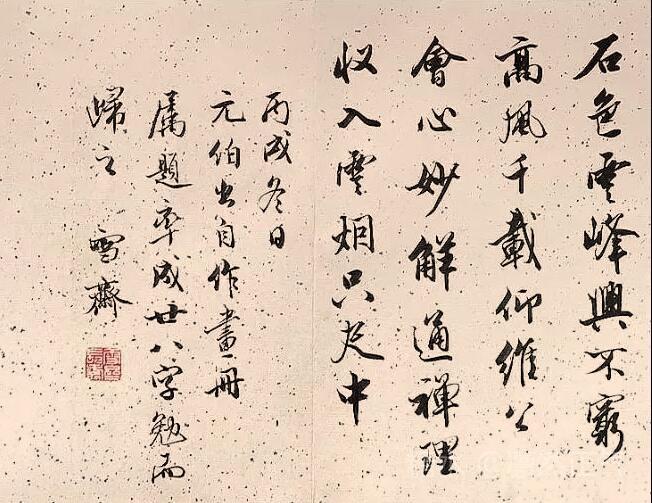 石色雲峰興不窮
高風千載仰維公
會心妙解通禪理
收入雲烟只尺中
丙戌冬日
元伯出自作畫冊
属題率成廿八字勉而
歸之 雪齋